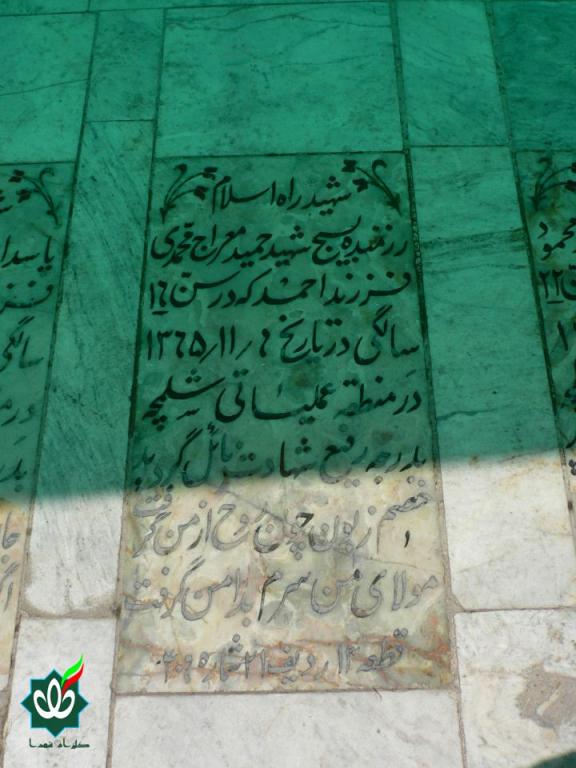 شهید راه اسلام
رزمنده بسیج شهید حمید معراج محمدی
فرزند احمد که در سن ۱۶
سالگی در تاریخ ۴/۱۱/۱۳۶۵
در منطقه عملیاتی شلمچه
بدرجه رفیع شهادت نائل گردید
خصم زبون چون روح از من گرفت
مولای من سرم بدامن گرفت
قطعه ۱۲ ردیف ۲۱ شماره
محمود
پاسدا
سالگی
گلزار شهدا